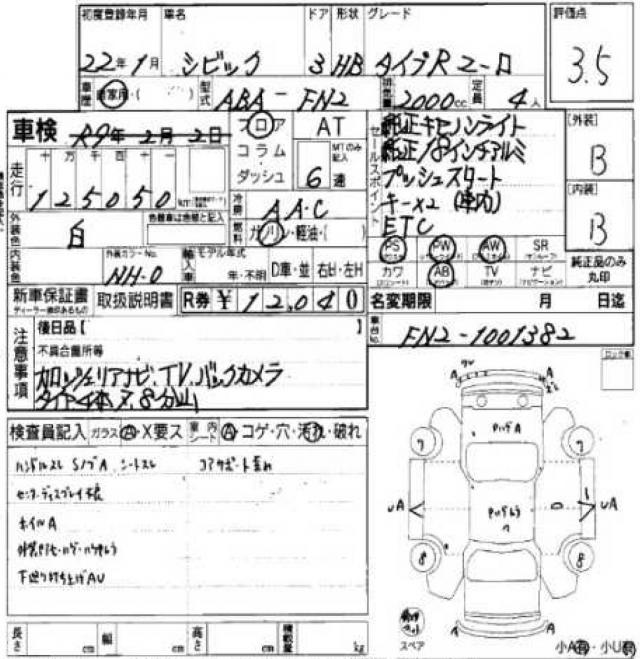 初度登録年月 車名 ドア 形状 グレード 評価点
22年1月 シビック 3 HB タイプR ユーロ 3.5
車歴 自家用・( ) 型式 ABA-FN2 排気量 2000cc 定員 4人
車検 R9年2月2日 フロア AT
コラム MTのみ記入
ダッシュ 6速
セールスポイント
純正キセノンライト
純正18インチアルミ
プッシュスタート
キーx2 (車内)
ETC
[外装] B
[内装] B
走行 十 万 千 百 十 一
125050
冷房 AAC
燃料 ガソリン・軽油・( )
外装色 白 色替車は色替と記入
内装色 外装カラーNo. NH-0
輸入車 モデル年式 年・不明 D車・並 右H・左H
PS PW AW SR
カワ AB TV ナビ
純正品のみ丸印
新車保証書 取扱説明書 R券 ¥12,040
名変期限 月 日迄
車台No. FN2-1001382
注意事項
後日品【
不具合箇所等
カロッツェリアナビ、TV、バックカメラ
タイヤ4本ヌ、8分山
検査員記入 ガラス A・X要ス 車内シート A・コゲ・穴・汚れ・破れ
ハンドルスレ SノブA シートスレ コアサポート歪れ
センターディスプレイ不良
ホイルA
下廻り打ち上げAU
ロック無
A A
7 7
UA UA
8 8
A A
スペア
小A有・小U有
長さ cm 幅 cm 高さ cm 積載量 kg